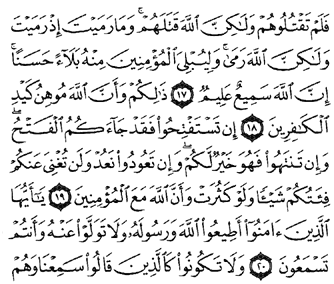 فَلَمْ تَقْتُلُوهُمْ وَلَٰكِنَّ اللَّهَ قَتَلَهُمْ ۚ وَمَا رَمَيْتَ إِذْ رَمَيْتَ
وَلَٰكِنَّ اللَّهَ رَمَىٰ ۚ وَلِيُبْلِيَ الْمُؤْمِنِينَ مِنْهُ بَلَاءً حَسَنًا ۚ
إِنَّ اللَّهَ سَمِيعٌ عَلِيمٌ ١٧ ذَٰلِكُمْ وَأَنَّ اللَّهَ مُوهِنُ كَيْدِ
الْكَافِرِينَ ١٨ إِن تَسْتَفْتِحُوا فَقَدْ جَاءَكُمُ الْفَتْحُ ۖ
وَإِن تَنتَهُوا فَهُوَ خَيْرٌ لَّكُمْ ۖ وَإِن تَعُودُوا نَعُدْ وَلَن تُغْنِيَ عَنكُمْ
فِئَتُكُمْ شَيْئًا وَلَوْ كَثُرَتْ وَأَنَّ اللَّهَ مَعَ الْمُؤْمِنِينَ ١٩ يَا أَيُّهَا
الَّذِينَ آمَنُوا أَطِيعُوا اللَّهَ وَرَسُولَهُ وَلَا تَوَلَّوْا عَنْهُ وَأَنتُمْ
تَسْمَعُونَ ٢٠ وَلَا تَكُونُوا كَالَّذِينَ قَالُوا سَمِعْنَا وَهُمْ